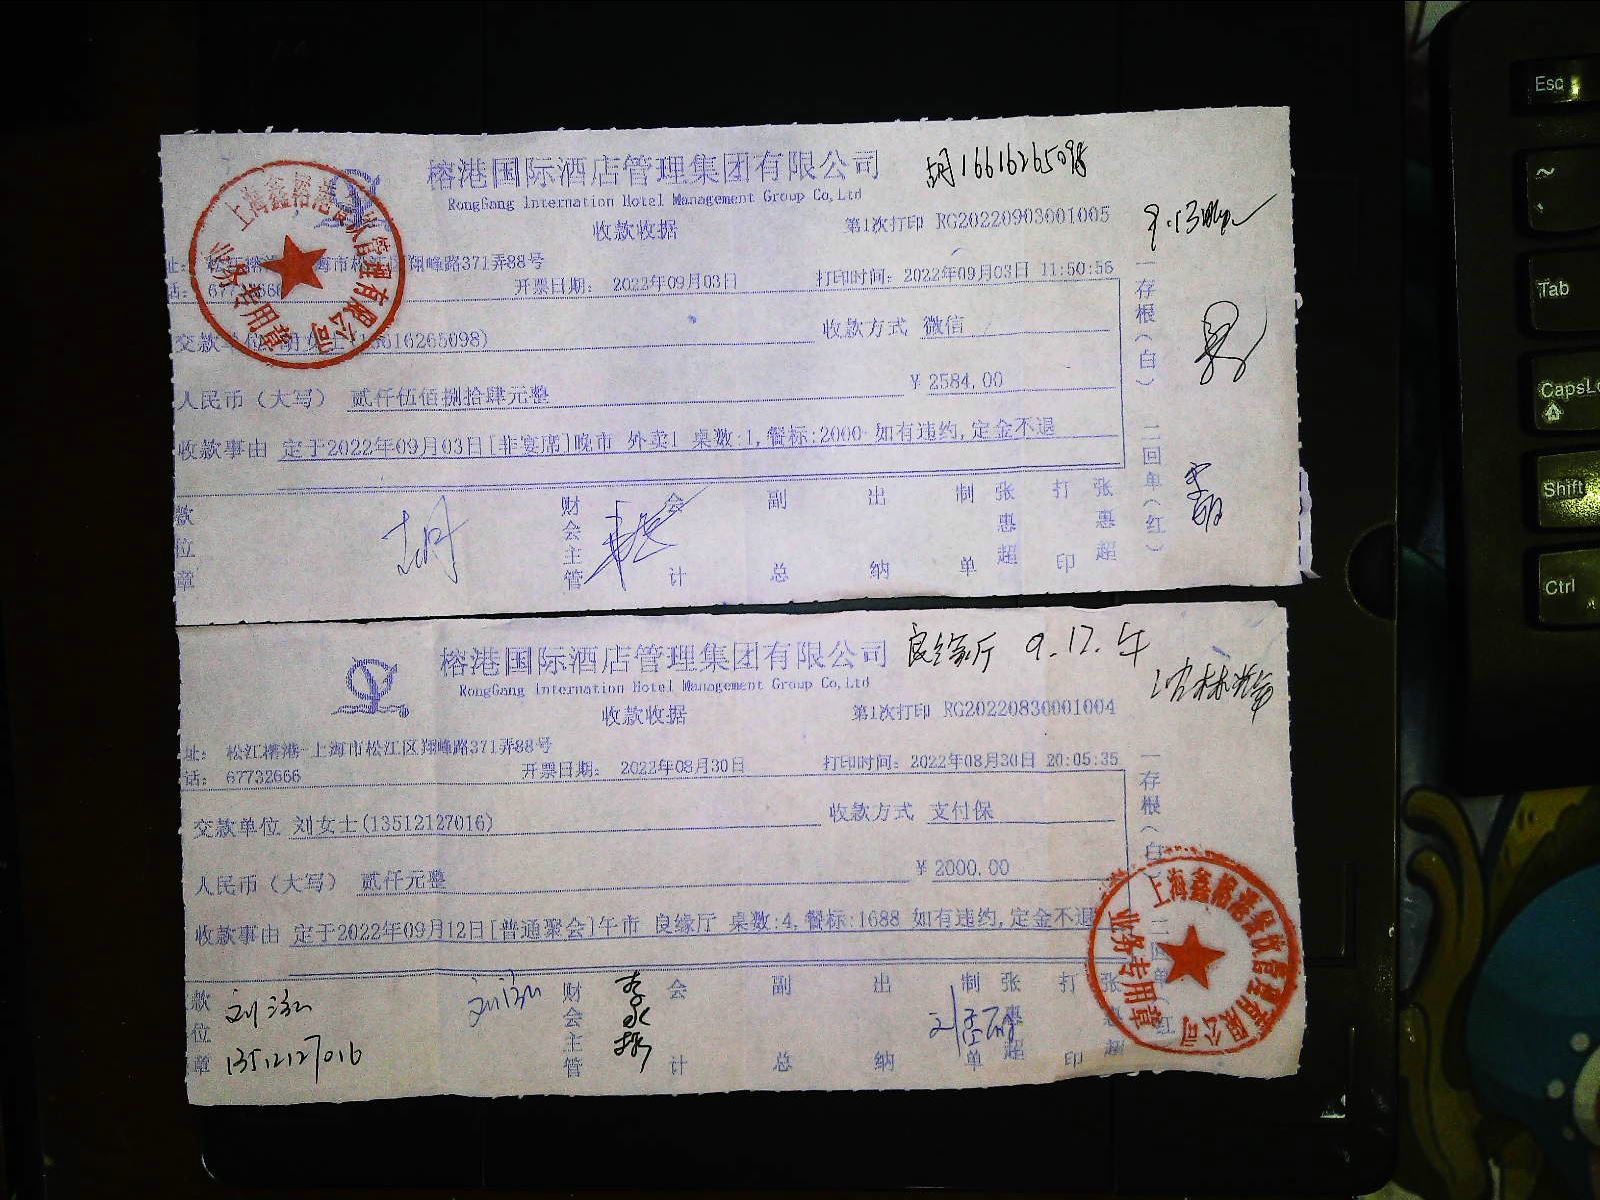 榕港国际酒店管理集团有限公司
胡16616265098
RongGang International Hotel Management Group Co,Ltd
收款收据
第1次打印 RG20220903001005
址: 松江榕港 海市松江 翔峰路371弄88号
开票日期: 2022年09月03日
打印时间: 2022年09月03日 11:50:56
收款方式 微信
人民币(大写) 贰仟伍佰捌拾肆元整
¥ 2584.00
收款事由 定于2022年09月03日[非宴席]晚市 外卖1 桌数:1,餐标:2000 如有违约,定金不退
款位章
胡
财会主管
会计
副总
出纳
制单
张惠超
打印
张惠超
一存根(白) 二回单(红)
业务专用章
榕港国际酒店管理集团有限公司
良缘厅 9.12.午
RongGang International Hotel Management Group Co,Ltd
收款收据
第1次打印 RG20220830001004
址: 松江榕港-上海市松江区翔峰路371弄88号
话: 67732666
开票日期: 2022年08月30日
打印时间: 2022年08月30日 20:05:35
交款单位 刘女士(13512127016)
收款方式 支付保
人民币(大写) 贰仟元整
¥ 2000.00
收款事由 定于2022年09月12日[普通聚会]午市 良缘厅 桌数:4,餐标:1688 如有违约,定金不退
款位章
13512127016
财会主管
李永振
会计
副总
出纳
制单
张惠超
打印
张 超
一存根(白 二 单(红
上海鑫榕港餐饮管理有限公司
业务专用章
Esc
~
Tab
CapsLo
Shift
Ctrl